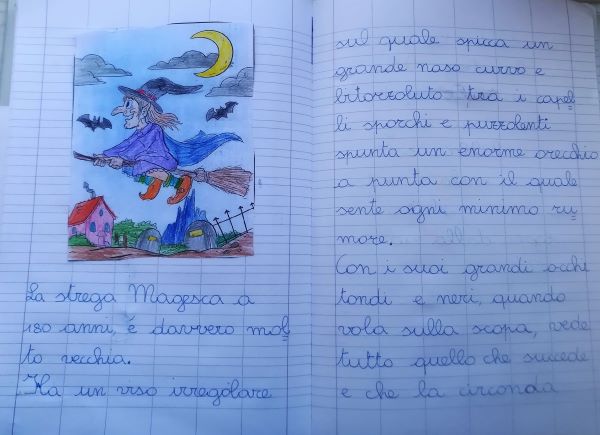 La strega Magesca a
180 anni, è davvero mol
to vecchia.
Ha un viso irregolare
sul quale spicca un
grande naso curvo e
bitorzoluto tra i capel
li sporchi e puzzolenti
spunta un enorme orecchio
a punta con il quale
sente ogni minimo ru
more.
Con i suoi grandi occhi
tondi e neri, quando
vola sulla scopa, vede
tutto quello che succede
e che la circonda